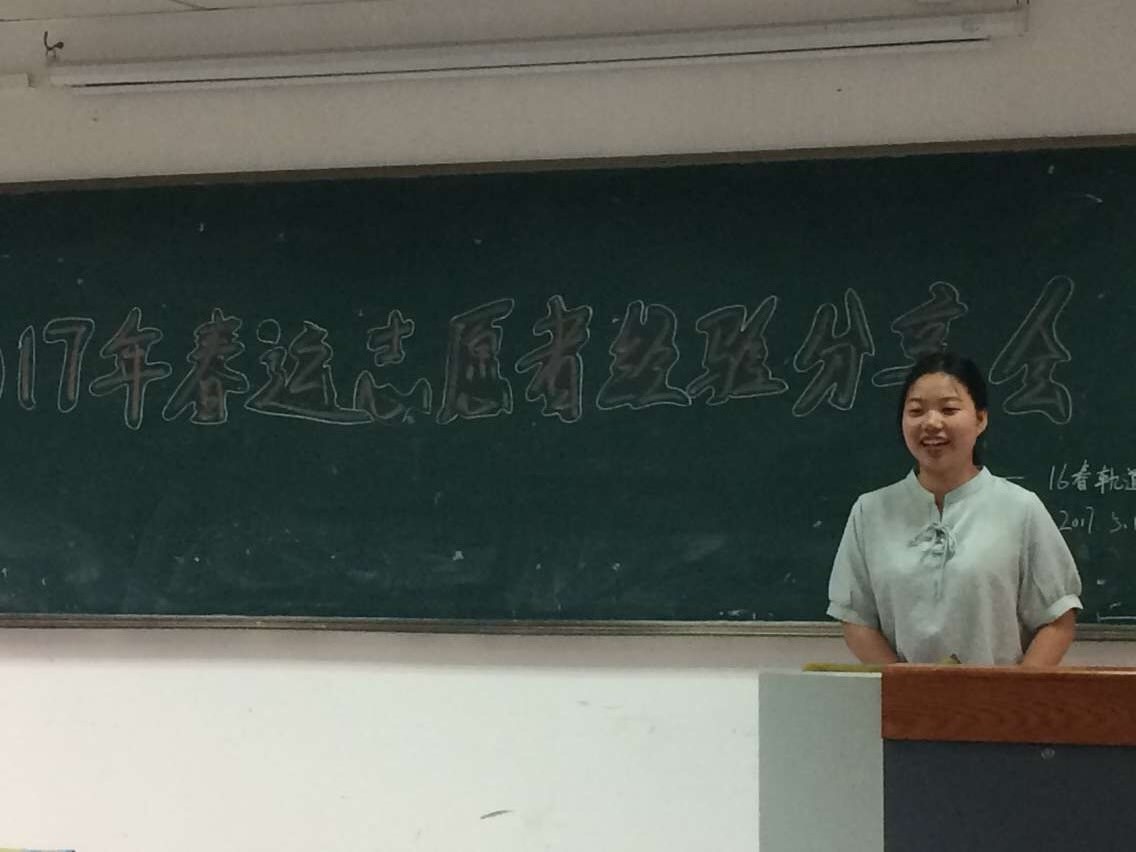 017年春运志愿者经验分享会
16春轨道
2017.5.1